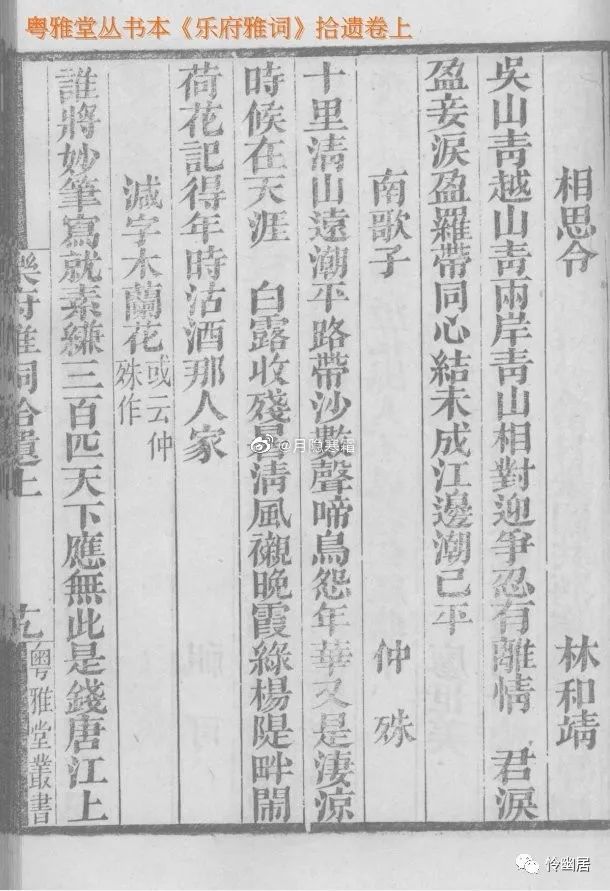 粤雅堂丛书本《乐府雅词》拾遗卷上
相思令 林和靖
吳山青越山青兩岸青山相對迎爭忍有離情 君淚
盈妾淚盈羅帶同心結未成江邊潮已平
南歌子 仲殊
十里清山遠潮平路帶沙數聲啼鳥怨年華又是淒涼
時候在天涯 白露收殘暑清風襯晚霞綠楊隄畔鬧
荷花記得年時沽酒那人家
減字木蘭花或云仲
殊作
誰將妙筆寫就素縑三百匹天下應無此是錢唐江上
樂府雅詞拾遺上
九
粤雅堂叢書
@月隐寒霜
怜幽居